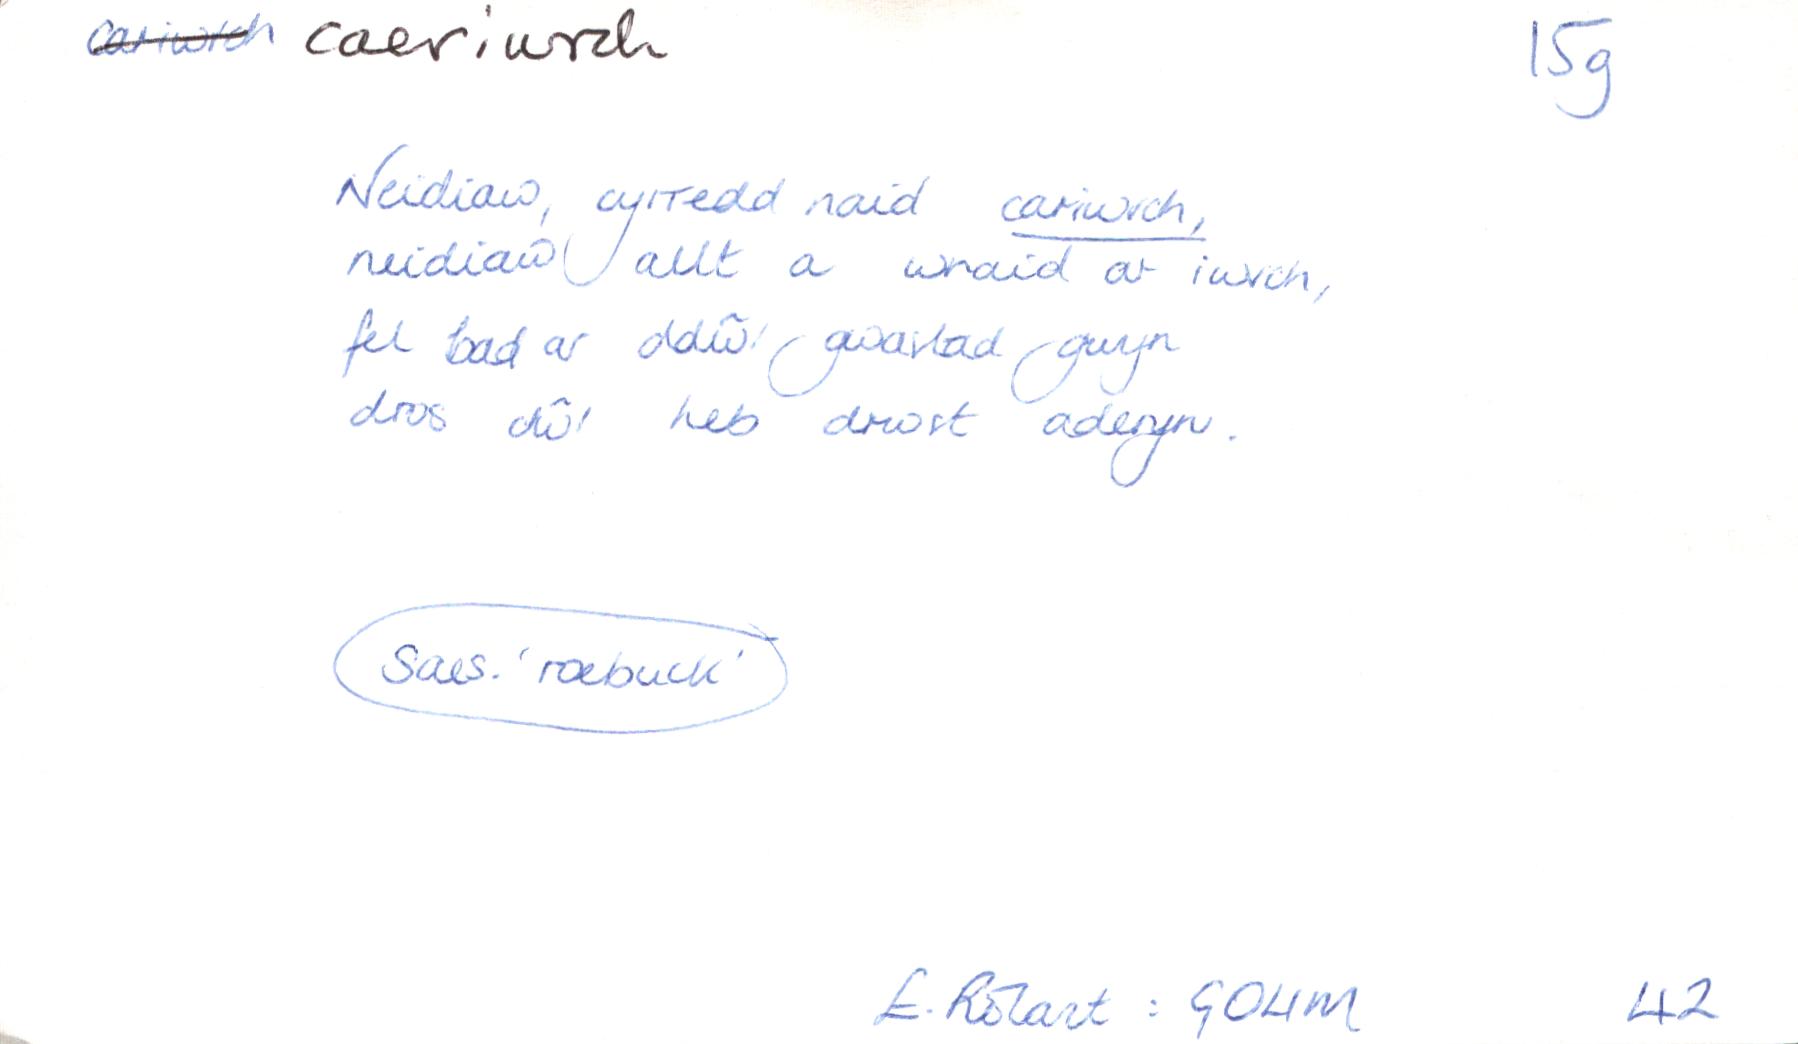 cariwrch caeriwrch 15g
Neidiaw, cyrredd naid cariwrch,
neidiaw allt a wnaid ar iwrch,
fel bad ar ddŵr gwastad gwyn
dros dŵr heb drwst aderyn.
Saes. 'roebuck'
E. Rolant: GOLlM 42